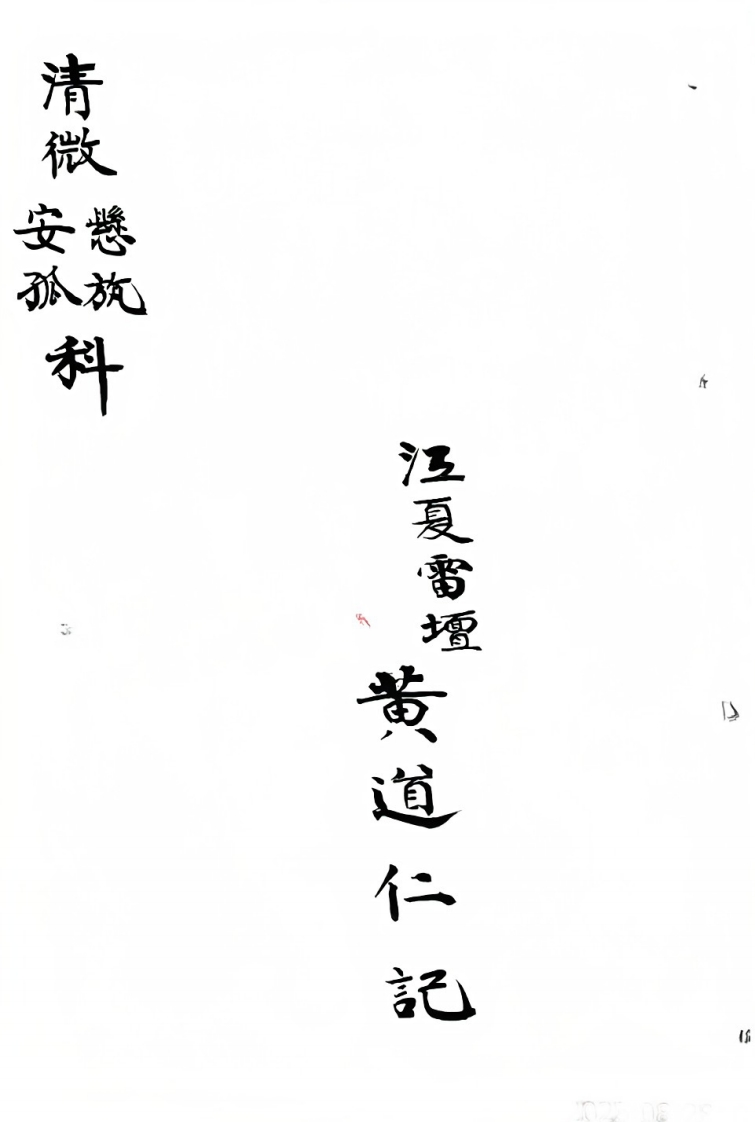 清微
懸旛
安孤
科
江夏雷壇
黄道仁記